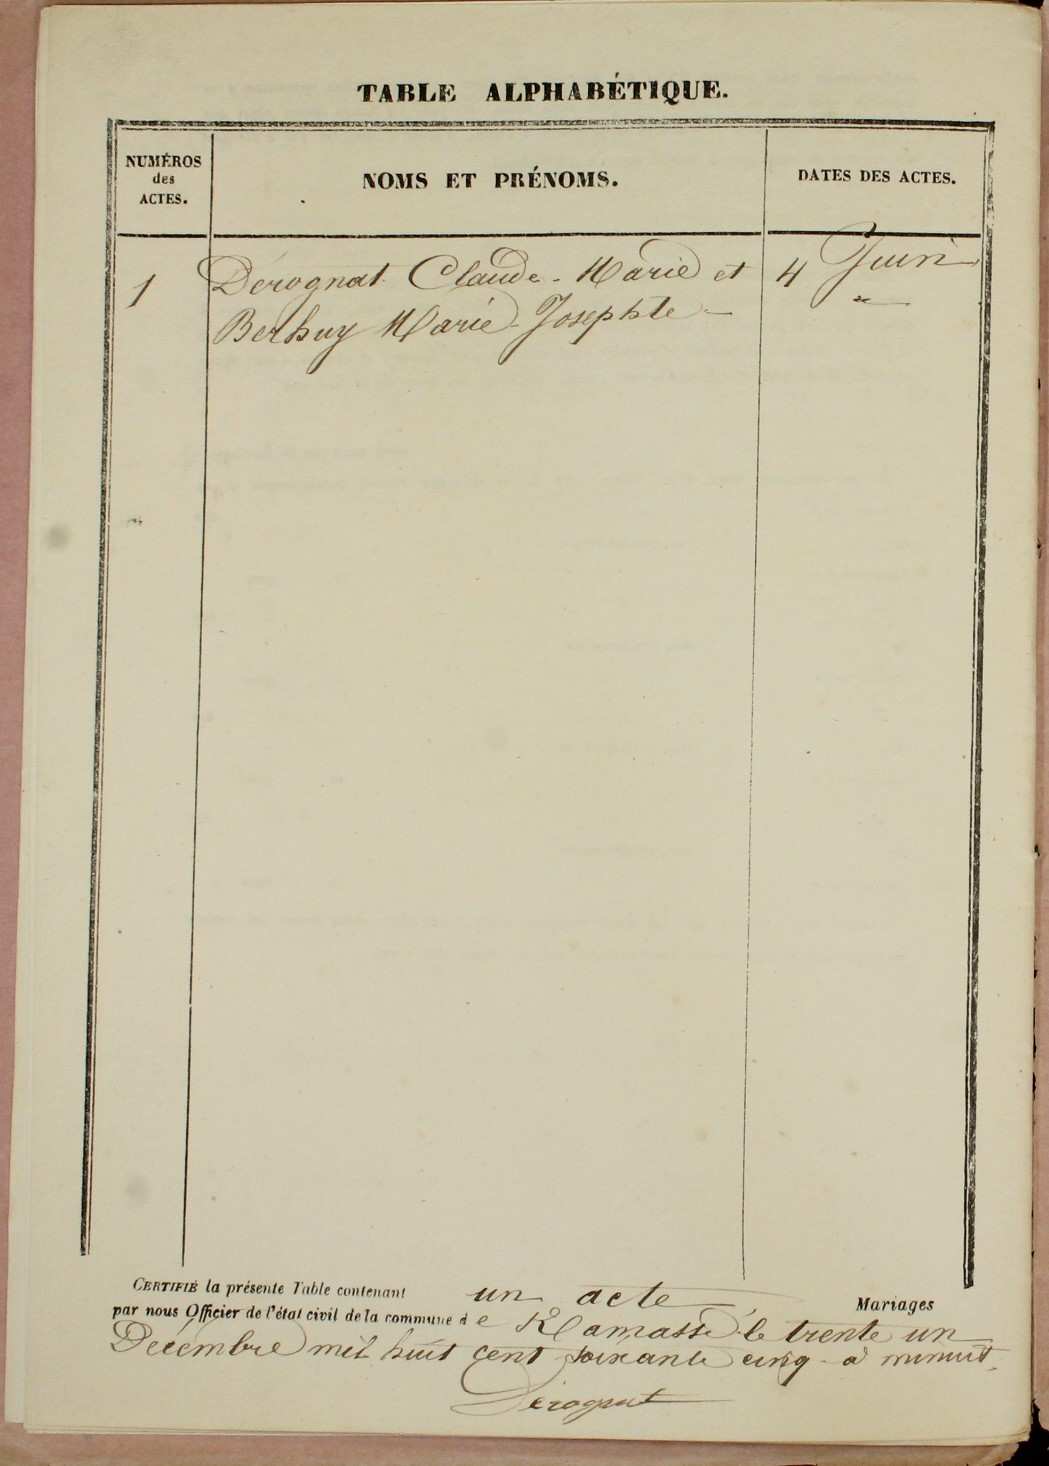 TABLE ALPHABÉTIQUE.
NUMÉROS
des
ACTES.
NOMS ET PRÉNOMS.
DATES DES ACTES.
1
Dérognat Claude-Marie et
4 Juin
Berhuy Marie-Josephte
CERTIFIÉ la présente Table contenant un acte Mariages
par nous Officier de l'état civil de la commune de Ramasse le trente un
Décembre mil huit cent soixante cinq à minuit.
Dérognat